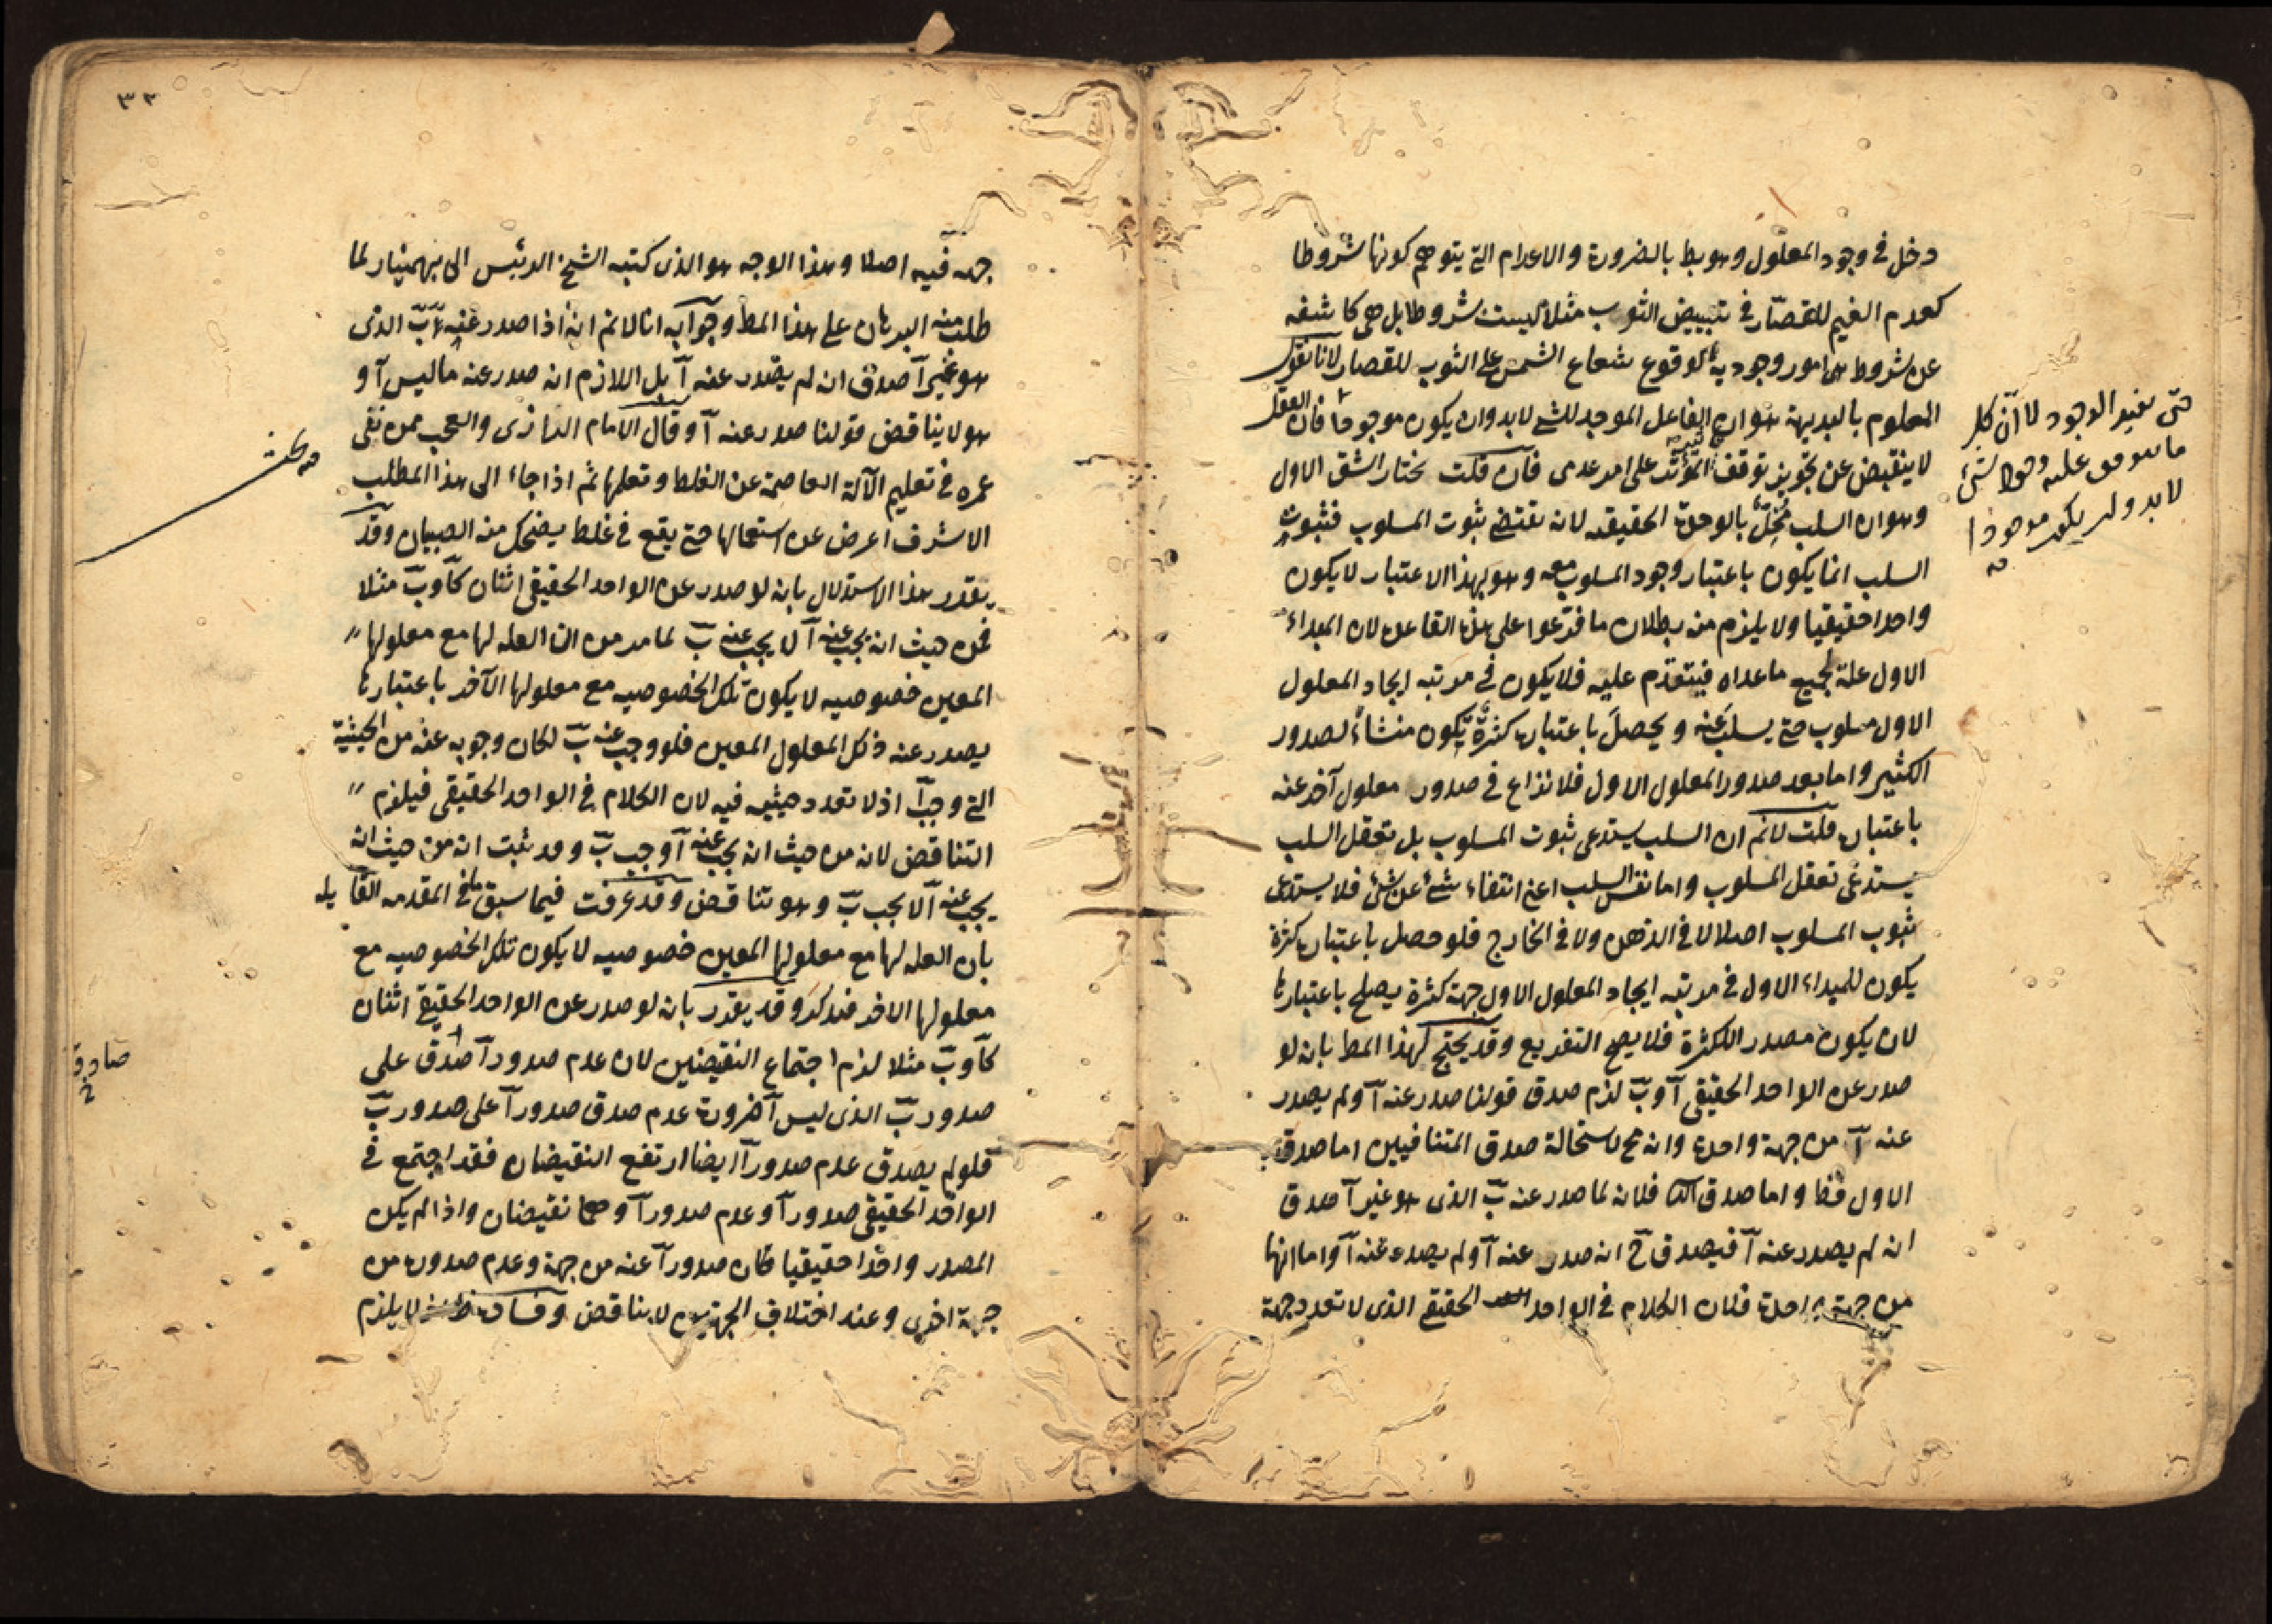 دخل فى وجود المعلول وهو بط بالضرورة والاعدام التى يتوهم كونها شروطا
كعدم الغيم للقصّار فى تبييض الثوب مثلا ليست شروطا بل هى كاشفه
عن شروط هى امور وجودية كوقوع شعاع الشمس على الثوب للقصار لانا نقول
المعلوم بالبديهة هو ان الفاعل الموجد للشئ لابد وان يكون موجودا فان العقل
لا ينقبض عن تجويز توقف المؤثر على امر عدمى فان قلت نختار الشق الاول
وهو ان السلب مخلّ بالوحدة الحقيقه لانه يقتضى ثبوت المسلوب فثبوت
السلب انما يكون باعتبار وجود المسلوب معه وهو بهذا الاعتبار لا يكون
واحدا حقيقيا ولا يلزم من بطلان ما فرعوا على هذه القاعدة لان المبداء
الاول علة لجميع ما عداه فيتقدم عليه فلا يكون فى مرتبه ايجاد المعلول
الاول مسلوب حتى يسلب عنه ويحصل باعتباره كثرة يكون منشاء لصدور
الكثير واما بعد صدور المعلول الاول فلا نزاع فى صدور معلول آخر عنه
باعتباره قلت لانم ان السلب يستدعى ثبوت المسلوب بل تعقل السلب
يستدعى تعقل المسلوب واما نفس السلب اعنى انتفاء شئ عن شئ فلا يستدعى
ثبوب المسلوب اصلا لا فى الذهن ولا فى الخارج فلو حصل باعتباره كثرة
يكون للمبداء الاول فى مرتبه ايجاد المعلول الاول جهة كثرة يصلح باعتبارها
لان يكون مصدر الكثرة فلا يصح التفريع وقد يحتج لهذا المط بانه لو
صدر عن الواحد الحقيقى آ وبّ لزم صدق قولنا صدر عنه آ ولم يصدر
عنه آ من جهة واحدة وانه مح لاستحالة صدق المتنافيين اما صدق
الاول فظ واما صدق الثا فلانه لما صدر عنه بّ الذى هو غير آ صدق
انه لم يصدر عنه آ فيصدق ح انه صدر عنه آ ولم يصدر عنه آ واما انها
من جهة واحدة فلان الكلام فى الواحد الحقيقى الذى لا تعدد جهة
حتى يفيد الوجود لا ان كل
لابد وان يكون موجودا
٣٢
جهه فيه اصلا وهذا الوجه هو الذى كتبه الشيخ الرئيس الى بهمنيار لما
طلب منه البرهان على هذا المط وجوابه انا لانم انه اذا صدر عنه بّ الذى
هو غير آ صدق ان لم يصدر عنه آ بل اللازم انه صدر عنه ما ليس آ و
هو لا يناقض قولنا صدر عنه آ وقال الامام الرازى والعجب ممن نفى
عمره فى تعليم الآلة العاصمة عن الغلط وتعلمها ثم اذا جاء الى هذا المطلب
الاشرف اعرض عن استعمالها حتى يقع فى غلط يضحك منه الصبيان وقد
يقرر هذا الاستدلال بانه لو صدر عن الواحد الحقيقى اثنان كآ وبّ مثلا
فمن حيث انه يجب عنه آ لا يجب عنه بّ لما مر من ان العله لها مع معلولها
المعين خصوصيه لا يكون تلك الخصوصيه مع معلولها الآخر باعتبارها
يصدر عنه ذلك المعلول المعين فلو وجب عنه بّ لكان وجوبه عنه من الحيثية
التى وجب آ اذ لا تعدد حيثيه فيه لان الكلام فى الواحد الحقيقى فيلزم
التناقض لانه من حيث انه يجب عنه آ وجب بّ وقد ثبت انه من حيث انه
يجب عنه آ لا يجب بّ وهو تناقض وقد عرفت فيما سبق ما فى المقدمه القايله
بان العله لها مع معلولها المعين خصوصيه لا يكون تلك الخصوصيه مع
معلولها الاخر فتذكر وقد يقرر بانه لو صدر عن الواحد الحقيقى اثنان
كآ وبّ مثلا لزم اجتماع النقيضين لان عدم صدور آ صدق على
صدور بّ الذى ليس آ ضرورة عدم صدق صدور آ على صدور بّ
فلو لم يصدق عدم صدور آ ايضا ارتفع النقيضان فقد اجتمع فى
الواحد الحقيقى صدور آ وعدم صدور آ وهما نقيضان واذا لم يكن
المصدر واحدا حقيقيا كان صدور آ عنه من جهة وعدم صدوره من
جهة اخرى وعند اختلاف الجهتين لا يناقض وفساده لا يلزم
صادق